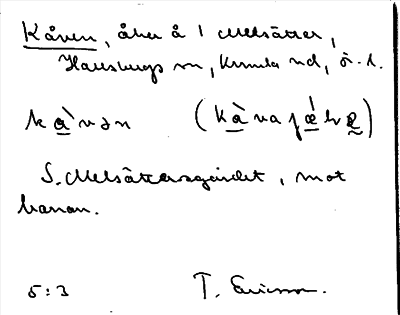 Kåven, åker å 1 Melsätter,
Hallsbergs sn, Kumla hd, Ö. l.
kàvən (kàva jælva)
S. Melsättersgärdet, mot
banan.
5:3 T. Ericsson.